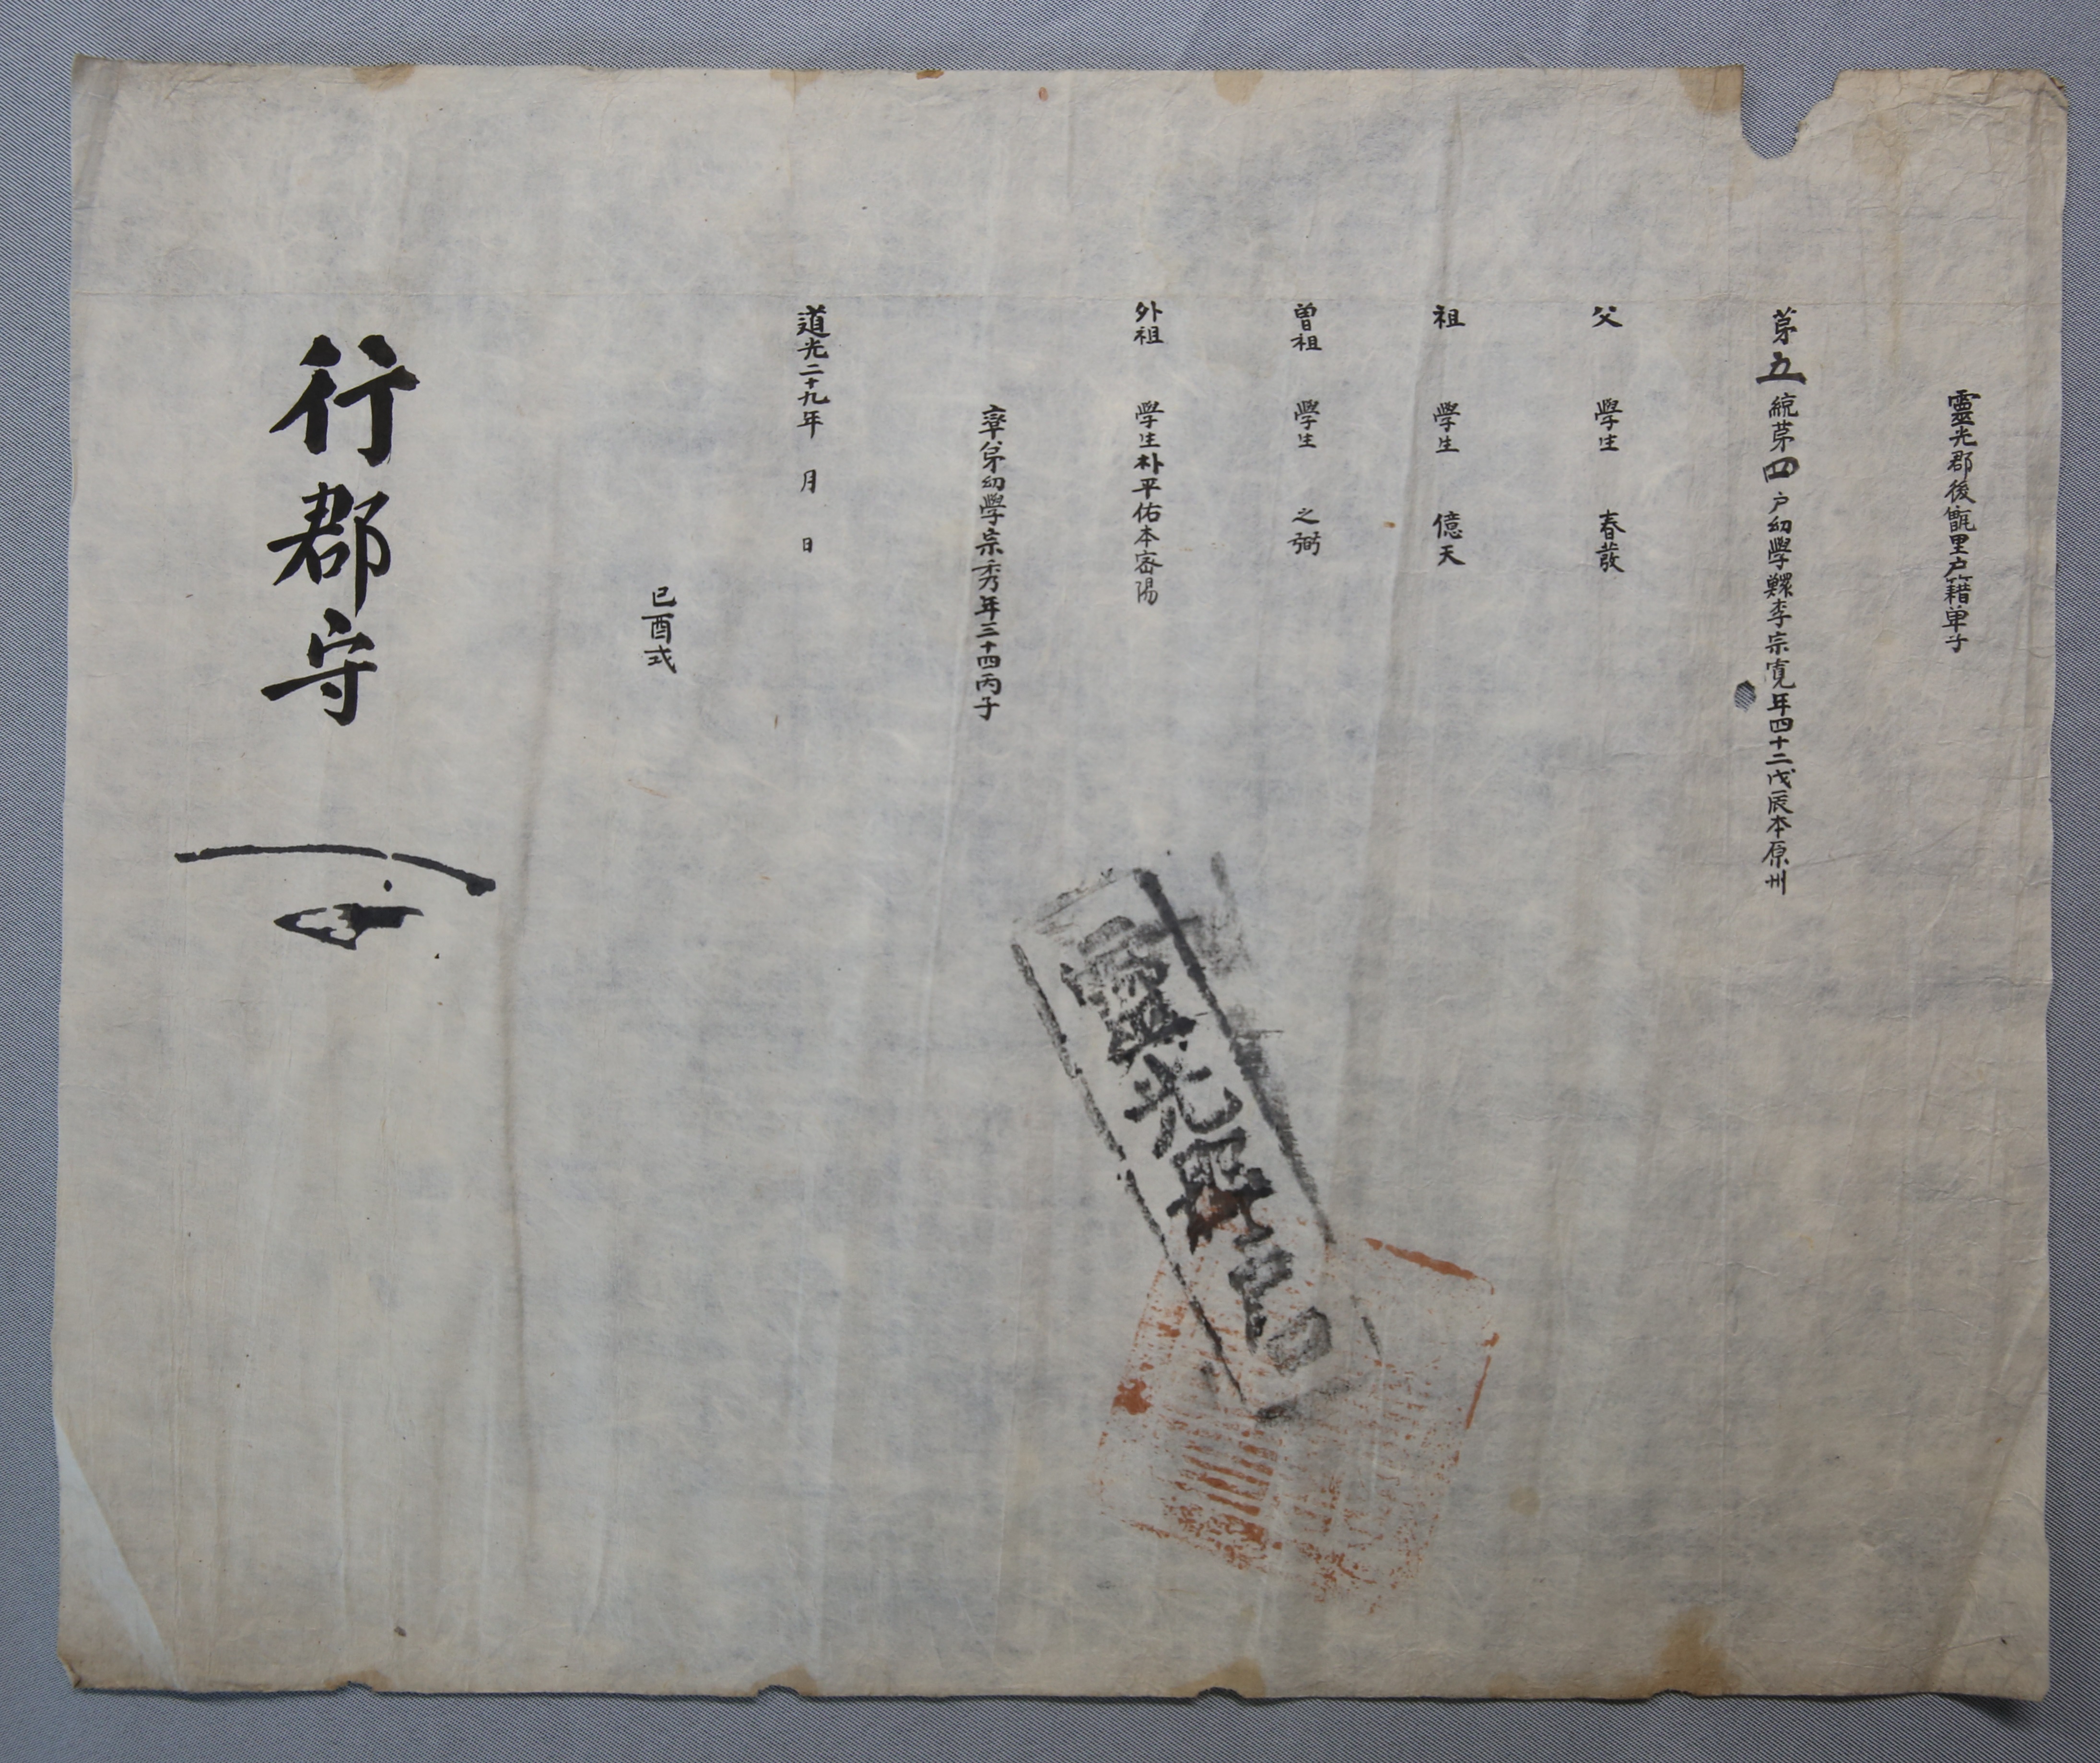 靈光郡後甑里戶籍単子
苐五統苐四戶幼學鰥李宗寬年四十二戊辰本原州
父 學生 春發
祖 學生 億天
曾祖 學生 之弼
外祖 學生朴平佑本密陽
率弟幼學宗秀年三十四丙子
道光二十九年 月 日
己酉式
行郡守
靈光